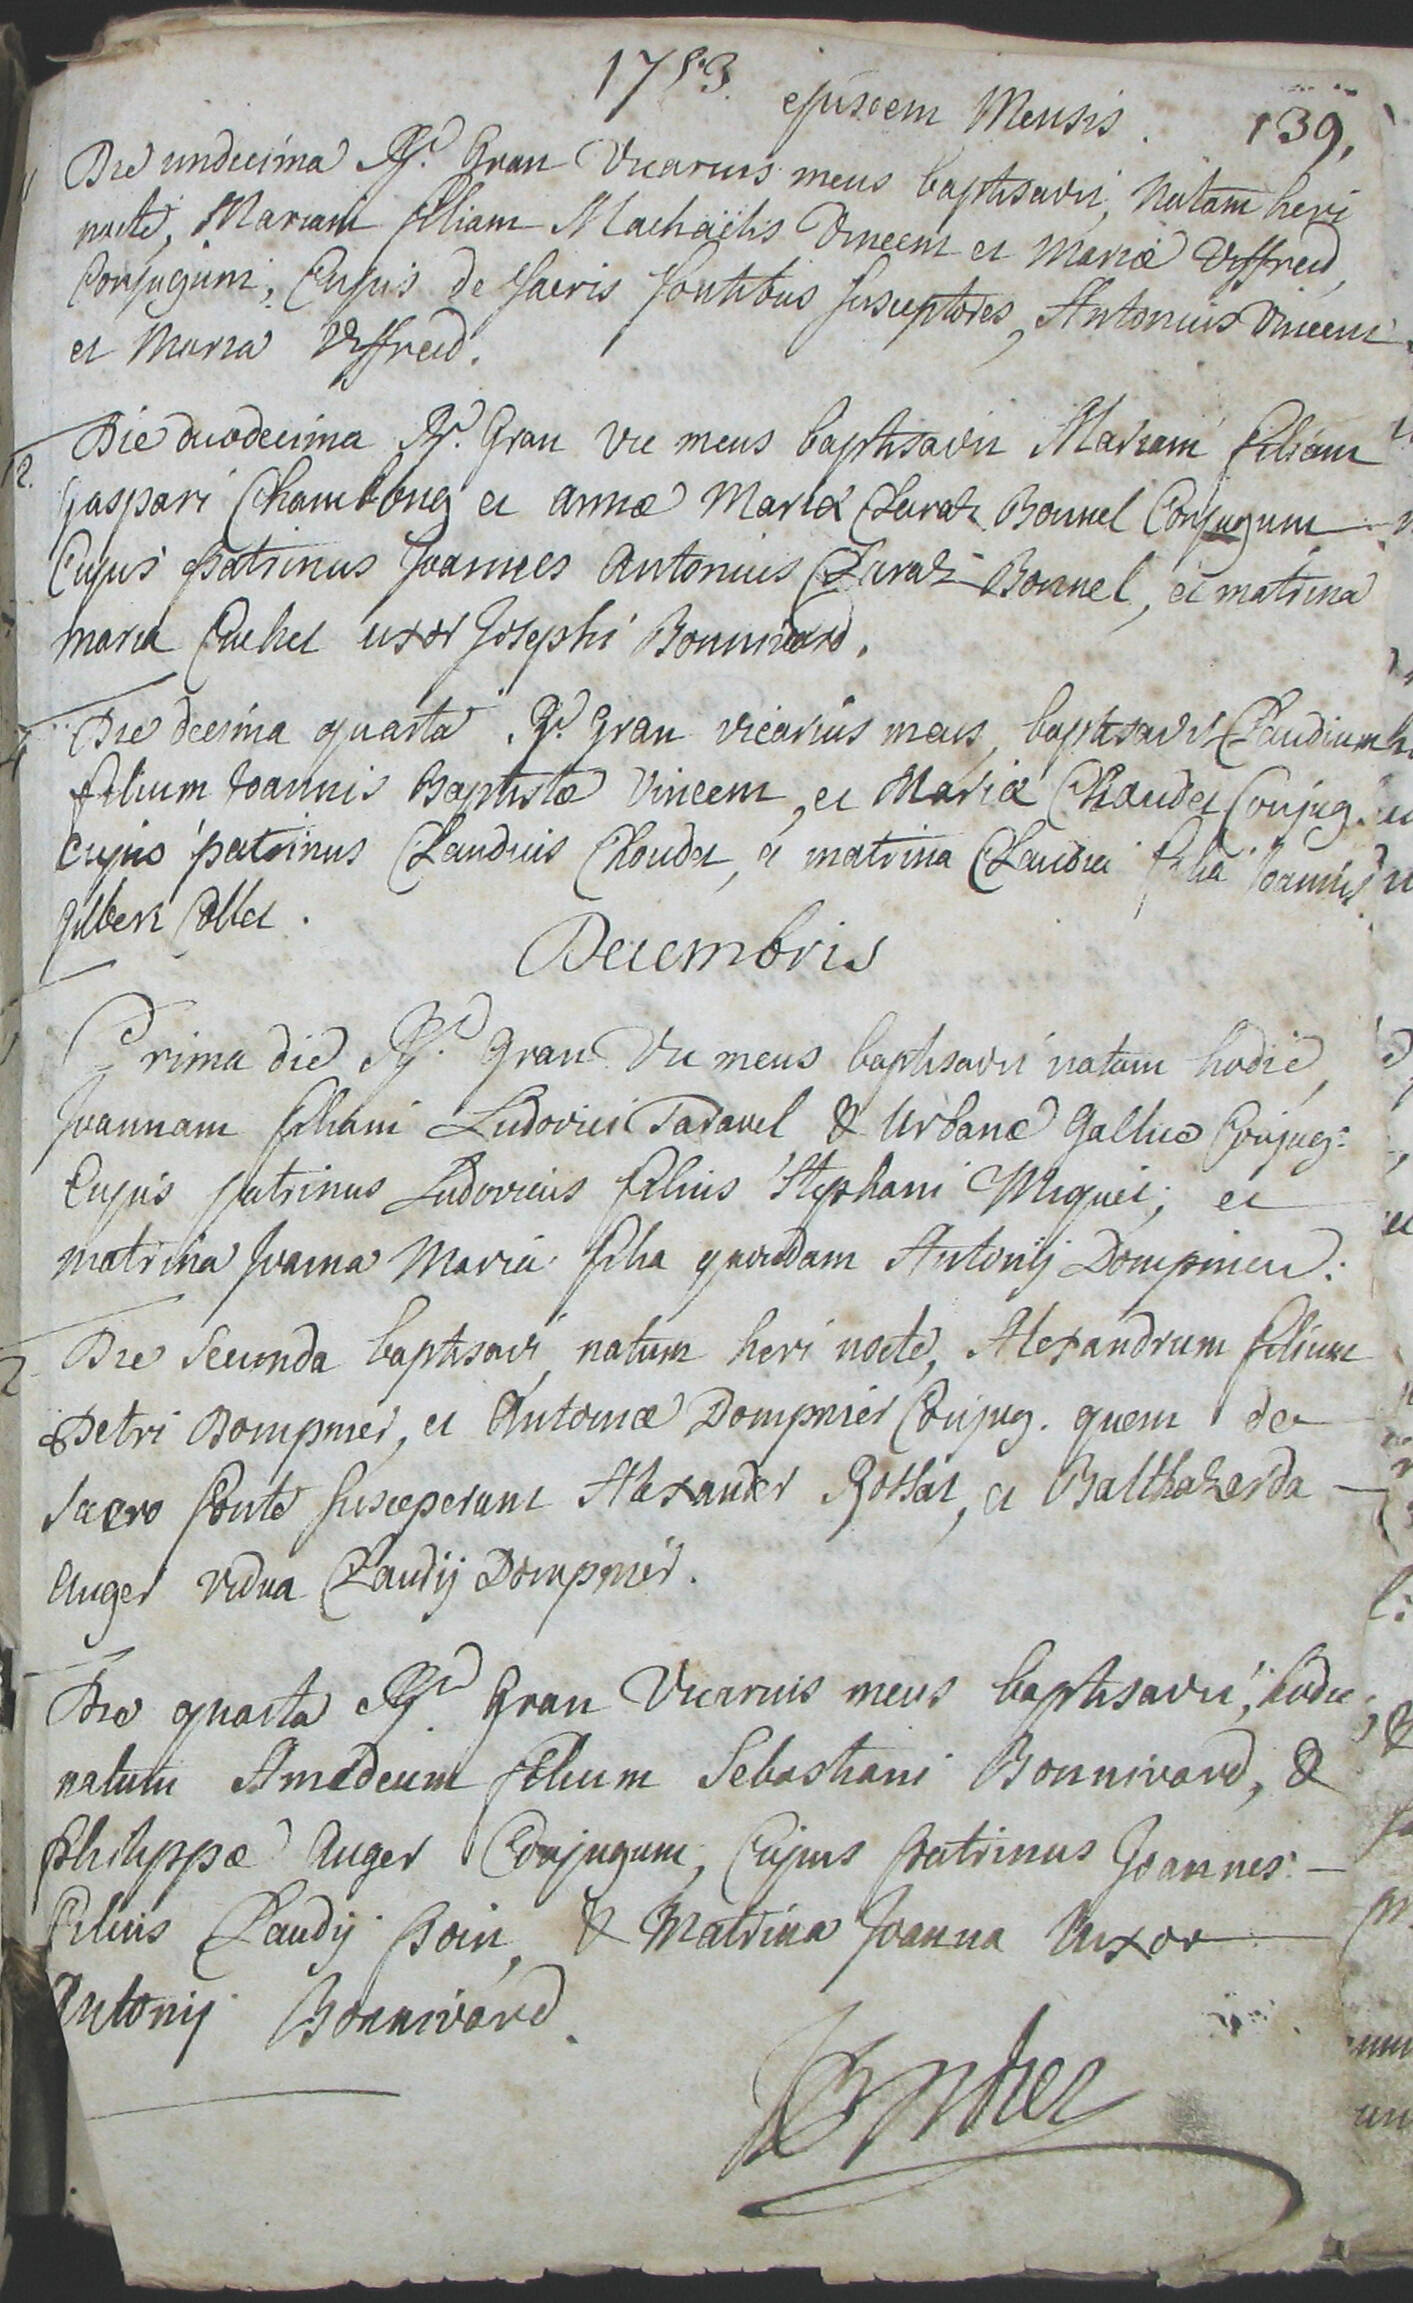 1753. ejusdem Mensis. 139.
Die undecima Rd. Gran Vicarius meus baptisavit, Natam heri
nocte, Mariam filiam Machaëlis Vincent et Mariæ Viffred,
Conjugum, Cujus de sacris fontibus susceptores, Antonius Vincent
et Maria Viffred.
12. Die duodecima Rd. Gran Vic meus baptisavit Mariam filiam
Gaspari Chambong et annæ Mariæ Claraz Bonnel Conjugum
Cujus patrinus Joannes Antonius Claraz Bonnel, et matrina
maria uxor Josephi Bonnivard.
Die decima quarta Rd. Gran vicarius meus, baptisavit Claudium
filium Joannis Baptistæ Vincent, et Mariæ Choudet Conjug.
Cujus patrinus Claudius Choudet, et matrina Claudia filia Joannis
gilbert Collet.
Decembris
Prima die Rd. Gran Vic meus baptisavit natam hodie,
Joannam filiam Ludovici Taravel & Urbanæ Gallice Conjug:
Cujus patrinus Ludovicus filius Stephani Miguet; et
matrina Joanna Maria filia quondam Antonij Dompnier:
2 Die Secunda baptisavi, natum heri nocte, Alexandrum filium
Petri Dompnier, et Antoniæ Dompnier Conjug. quem de
Sacro fonte susceperunt Alexander Rostat, et Balthazarda
Auger vidua Claudij Dompnier.
Die quarta Rd. Gran Vicarius meus baptisavit, hodie,
natum Amedeum filium Sebastiani Bonnivard, &
philippæ Auger Conjugum, Cujus patrinus Joannes
filius Claudij Boin, & Matrina Joanna Uxor
Antonij Bonnivard.